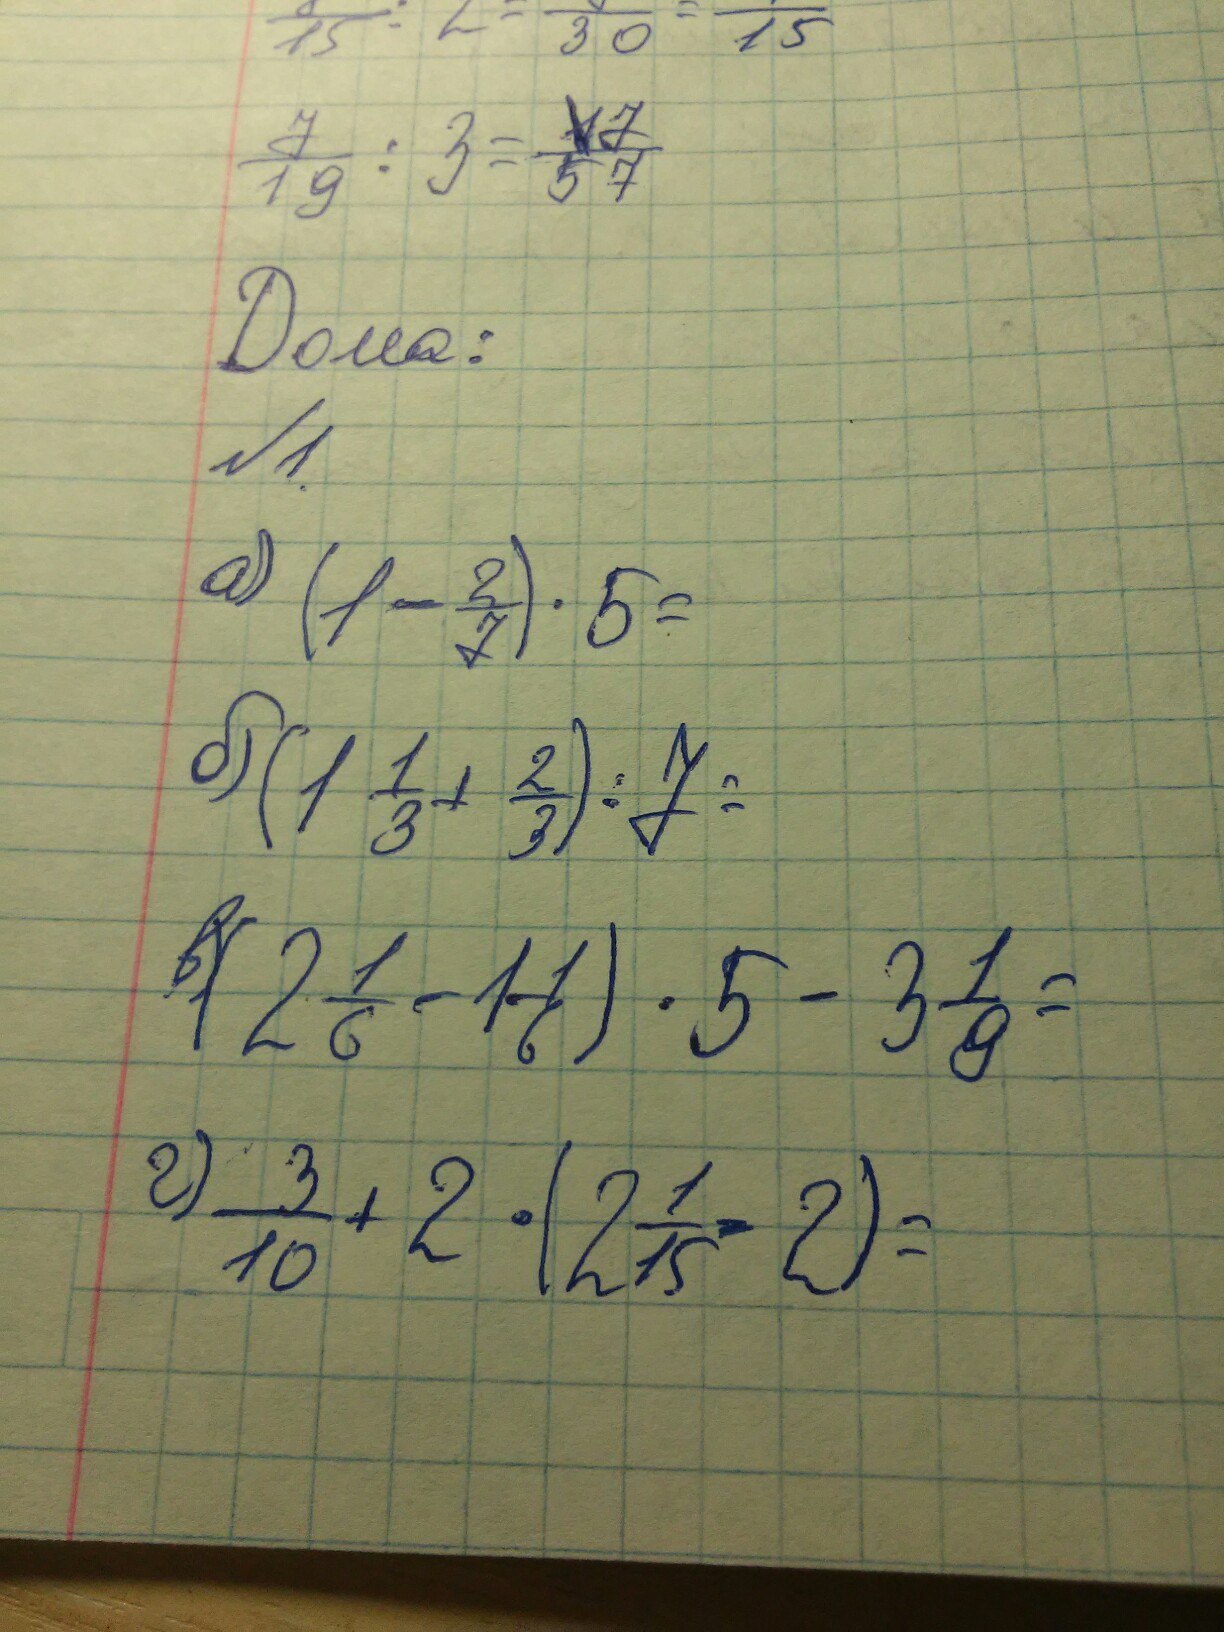 /15 : 2 = /30 = /15
7/19 : 3 = 7/57
Дома:
№1.
а) (1 - 2/7) · 5 =
б) (1 1/3 + 2/3) : 7 =
в) (2 1/6 - 1 1/6) · 5 - 3 1/9 =
г) 3/10 + 2 · (2 1/15 - 2) =